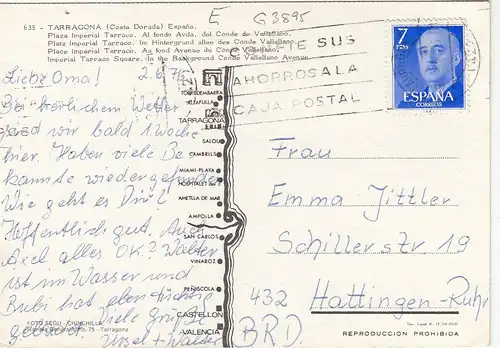 E G3895
635 - TARRAGONA (Costa Dorada) España.
Plaza Imperial Tarraco. Al fondo Avda. del Conde de Vallellano.
Platz Imperial Tarraco. Im Hintergrund allee des Conde Vallellano
Place Imperial Tarraco. Au fond Avenue du Conde Vallellano.
Imperial Tarraco Square. In the Background Conde Vallellano Avenue.
SUS
AHORROS A LA
CAJA POSTAL
7
PTAS
ESPAÑA
CORREOS
Liebe Oma! 2.6.76
Bei herrlichem Wetter
sind wir bald 1 Woche
hier. Haben viele Be
kannte wiedergefunden
Wie geht es Dir?
Hoffentlich gut. Auch
Axel alles OK? Walter
ist im Wasser und
Bubi hat eben tüchtig
Viele Grüße
Ursel + Walter
TORREDEMBARRA
ALTAFULLA
TARRAGONA
SALOU
CAMBRILS
MIAMI-PLAYA
HOSPITALET
AMETLLA DE MAR
AMPOLLA
SAN CARLOS
VINAROZ
PEÑISCOLA
CASTELLON
VALENCIA
Frau
Emma Jittler
Schillerstr 19
432 Hattingen-Ruhr
BRD
FOTO SEGU - CHINCHILLA
75 - Tarragona
REPRODUCCION PROHIBIDA